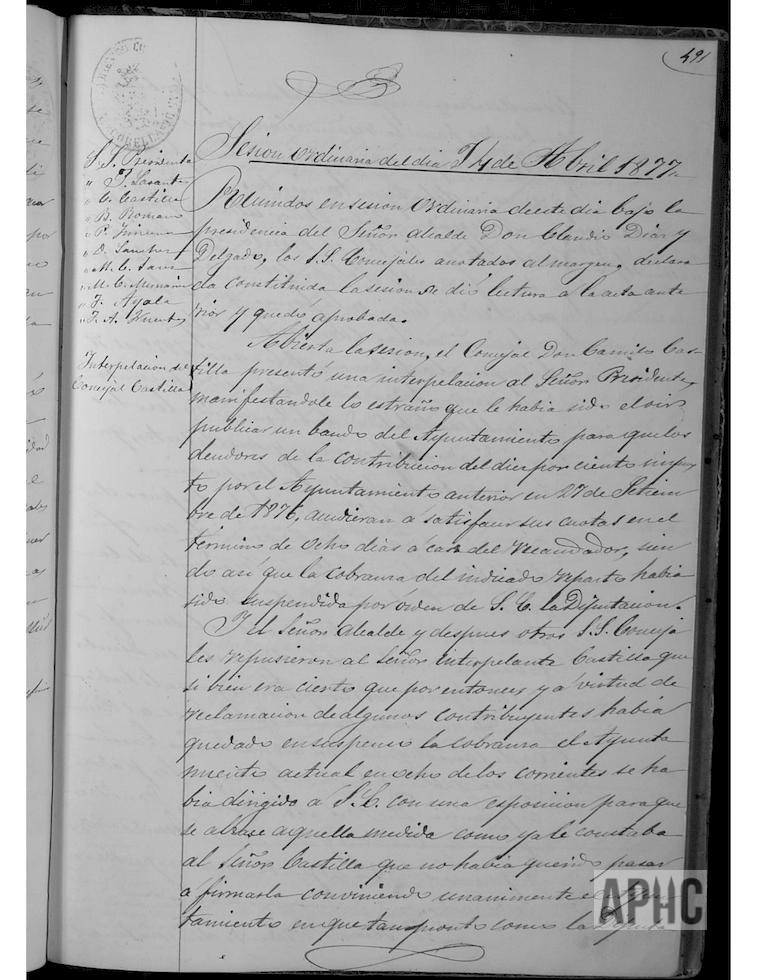 491
Sesion ordinaria del dia 14 de Abril 1877.
S.S. Presidente
" C. Castilla
" B. Romano
" P. Jimena
" D. Sanchez
" F. Ayala
Interpelacion del
Concejal Castilla
Reunidos en sesion ordinaria de este dia bajo la
presidencia del Señor Alcalde Don Claudio Diaz y
Delgado, los S.S. Concejales anotados al margen, declara
da constituida la sesion se dió lectura á la acta ante
rior y quedó aprobada.
Abierta la sesion, el Concejal Don Camilo Cas-
tilla presentó una interpelacion al Señor Presidente,
manifestandole lo estraño que le habia sido el oir
publicar un bando del Ayuntamiento para que los
deudores de la contribucion del diez por ciento impues
to por el Ayuntamiento anterior en 27 de Setiem
bre de 1876, acudieran á satisfacer sus cuotas en el
término de ocho dias á casa del recaudador, sien
do así que la cobranza del indicado reparto habia
sido suspendida por órden de S.E. la Diputacion.
Y el Señor Alcalde y despues otros S.S. Conceja
les repusieron al Señor interpelante Castilla que
si bien era cierto que por entonces y á virtud de
reclamacion de algunos contribuyentes habia
quedado en suspenso la cobranza el Ayunta
miento actual en ocho de los corrientes se ha
bia dirigido á S.E. con una esposicion para que
se alzase aquella medida como ya le constaba
al Señor Castilla que no habia querido pasar
a firmarla conviniendo unanimente el Ayun
tamiento en que tan pronto como la Diputa
APHC